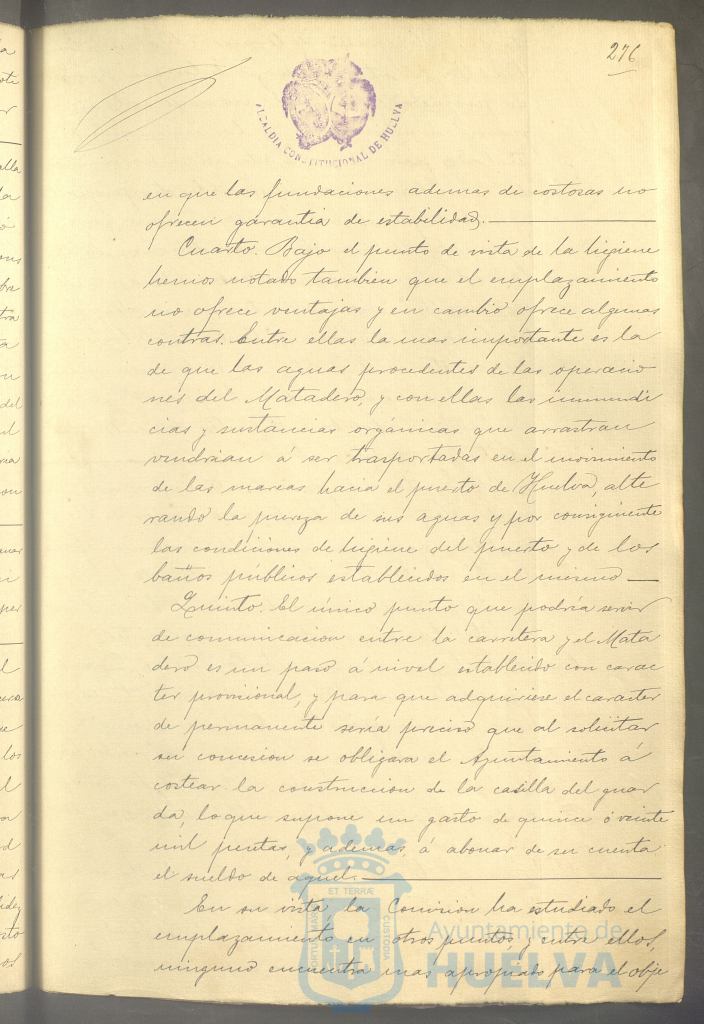 276
ALCALDIA CONSTITUCIONAL DE HUELVA
en que las fundaciones ademas de costosas no
ofrecen garantia de estabilidad.
Cuarto. Bajo el punto de vista de la higiene
hemos notado tambien que el emplazamiento
no ofrece ventajas y en cambio ofrece algunas
contras. Entre ellas la mas importante es la
de que las aguas procedentes de las operacio
nes del Matadero, y con ellas las inmundi
cias y sustancias orgánicas que arrastran
vendrian á ser trasportadas en el movimiento
de las mareas hacia el puerto de Huelva, alte
rando la pureza de sus aguas y por consiguiente
las condiciones de higiene del puerto y de los
baños públicos establecidos en el mismo
Quinto. El único punto que podría servir
de comunicacion entre la carretera y el Mata
dero es un paso á nivel establecido con carac
ter provisional, y para que adquiriese el caracter
de permanente sería preciso que al solicitar
su concesion se obligara el Ayuntamiento á
costear la construccion de la casilla del guar
da, lo que supone un gasto de quince ó veinte
mil pesetas, y ademas, á abonar de su cuenta
el sueldo de aquel.
En su vista la Comision ha estudiado el
emplazamiento en otros puntos y entre ellos,
ninguno encuentra mas apropiado para el obje
ET TERRÆ
PORTUS MARIS
CUSTODIA
Ayuntamiento de
HUELVA